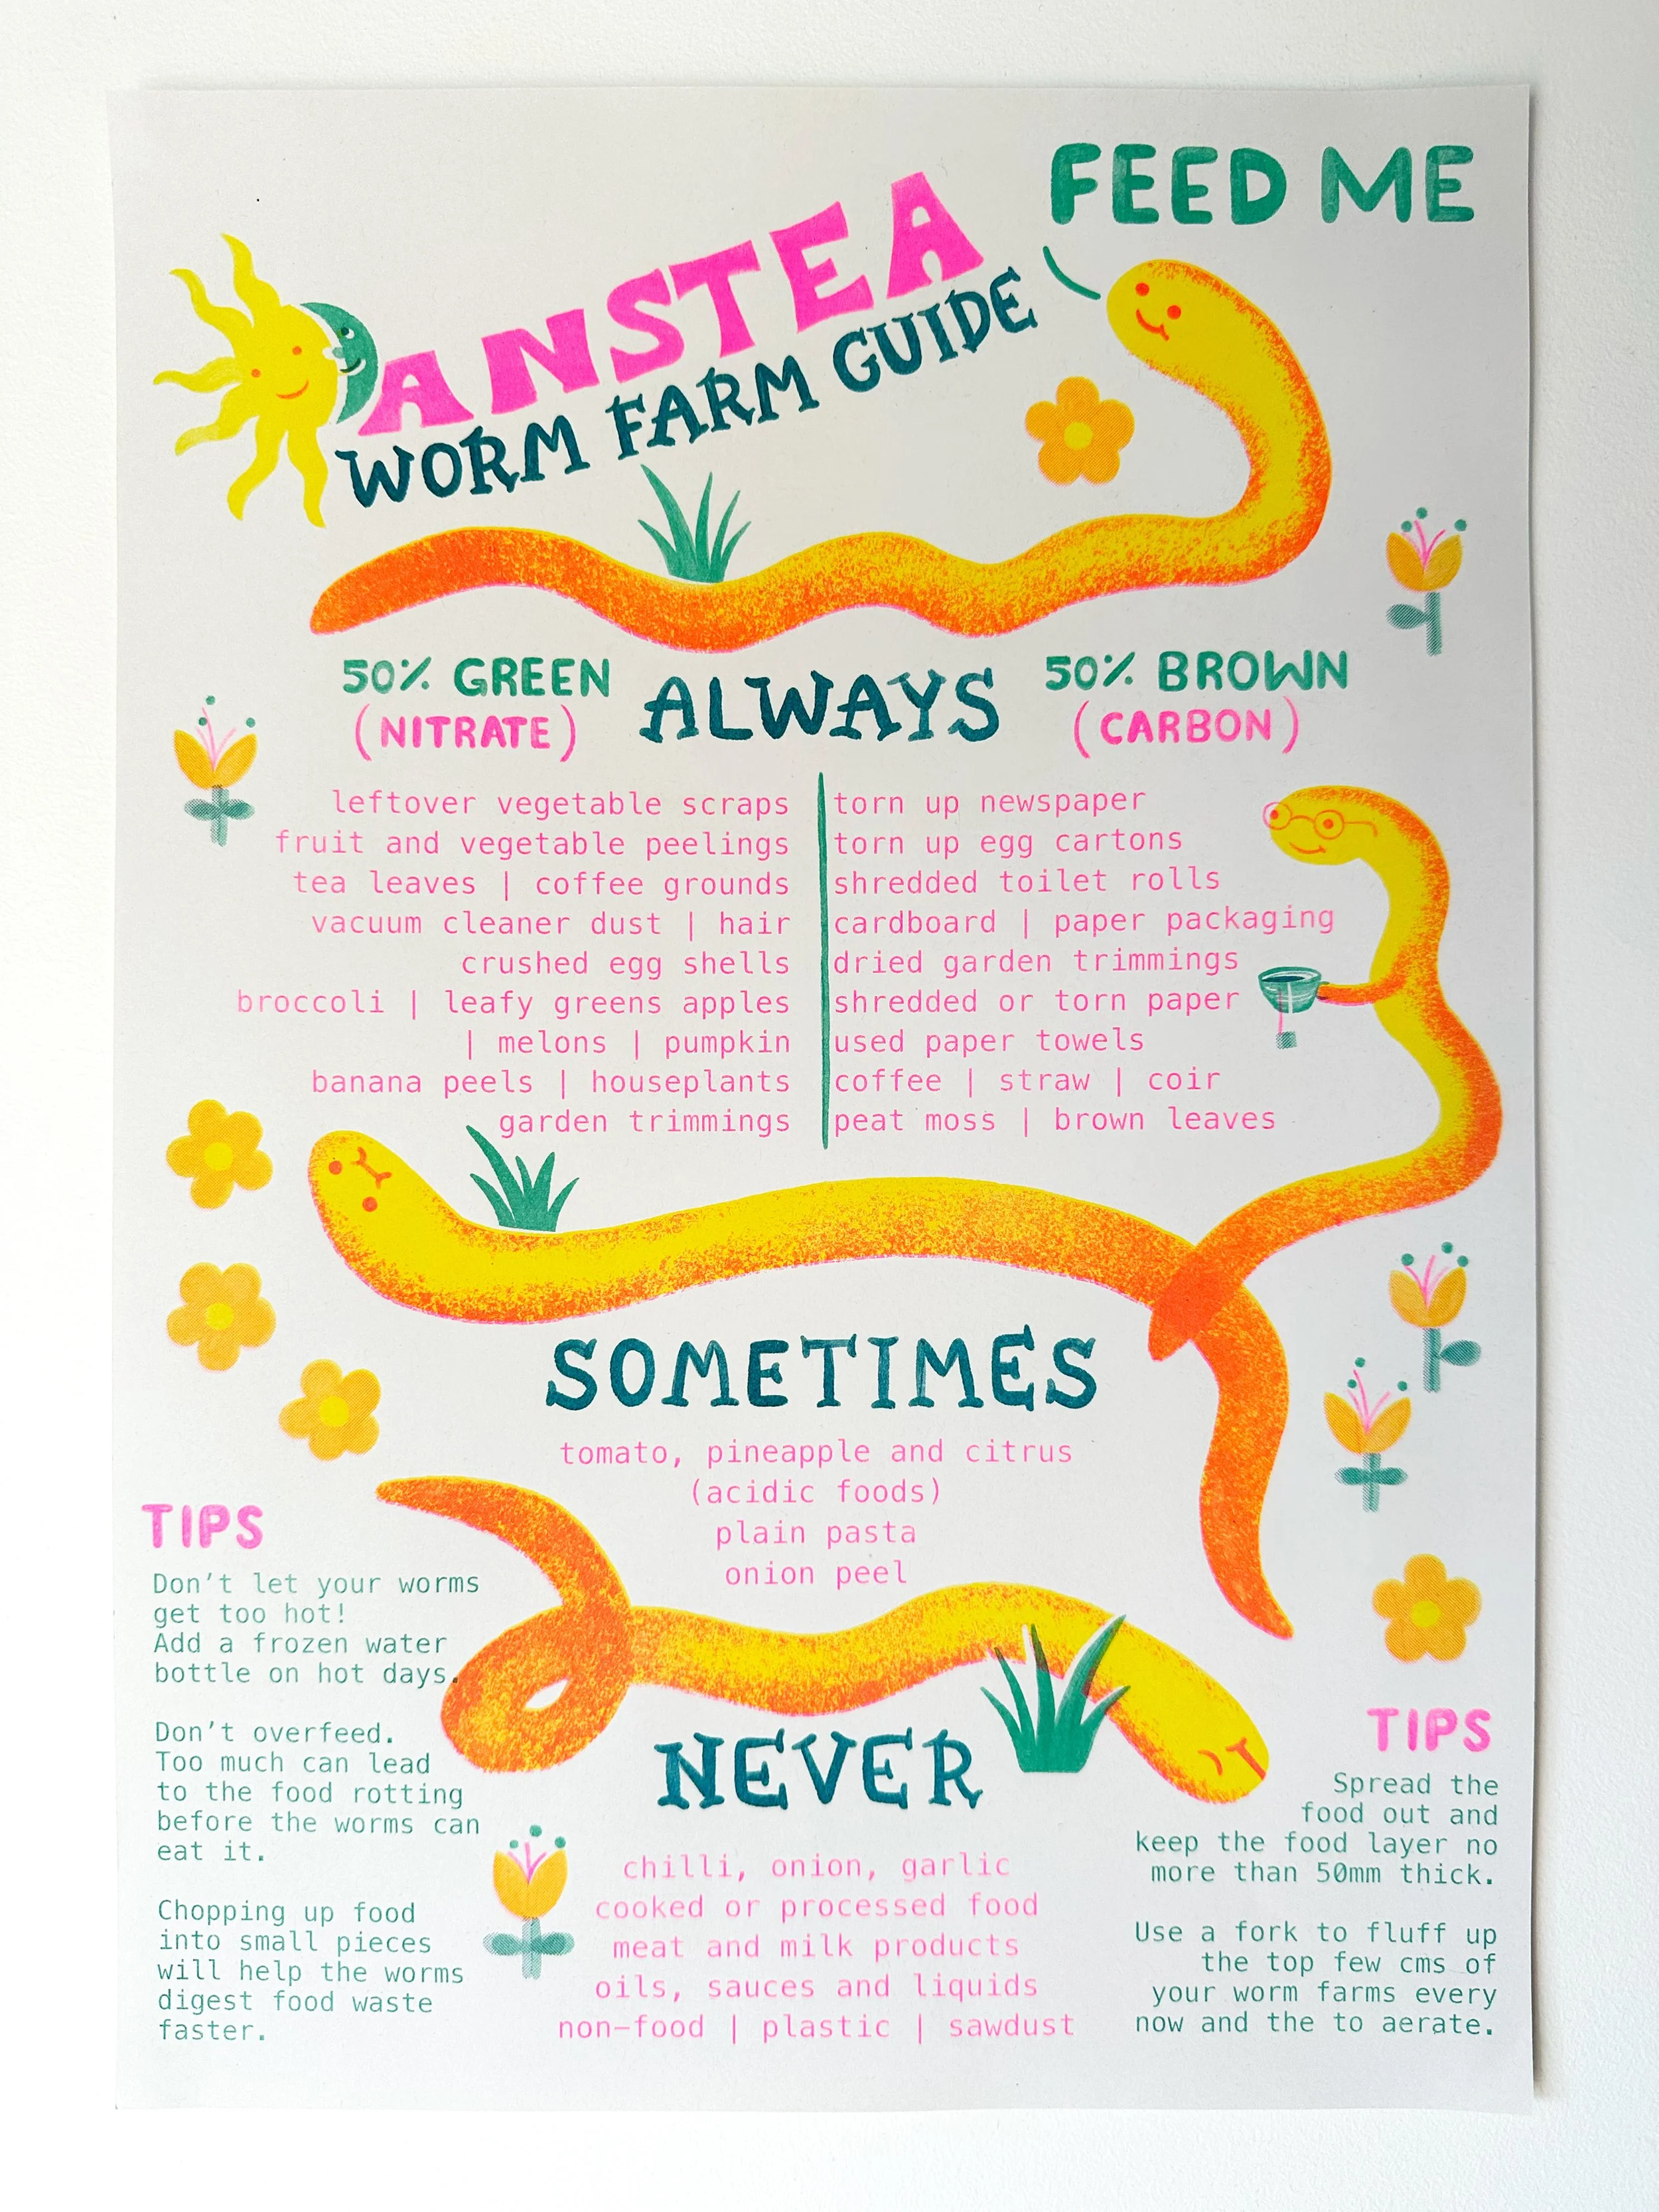 FEED ME
ANSTEA
WORM FARM GUIDE
50% GREEN
(NITRATE)
ALWAYS
50% BROWN
(CARBON)
leftover vegetable scraps
fruit and vegetable peelings
tea leaves | coffee grounds
vacuum cleaner dust | hair
crushed egg shells
broccoli | leafy greens apples
| melons | pumpkin
banana peels | houseplants
garden trimmings
torn up newspaper
torn up egg cartons
shredded toilet rolls
cardboard | paper packaging
dried garden trimmings
shredded or torn paper
used paper towels
coffee | straw | coir
peat moss | brown leaves
SOMETIMES
tomato, pineapple and citrus
(acidic foods)
plain pasta
onion peel
TIPS
Don't let your worms
get too hot!
Add a frozen water
bottle on hot days.
Don't overfeed.
Too much can lead
to the food rotting
before the worms can
eat it.
Chopping up food
into small pieces
will help the worms
digest food waste
faster.
NEVER
chilli, onion, garlic
cooked or processed food
meat and milk products
oils, sauces and liquids
non-food | plastic | sawdust
TIPS
Spread the
food out and
keep the food layer no
more than 50mm thick.
Use a fork to fluff up
the top few cms of
your worm farms every
now and the to aerate.